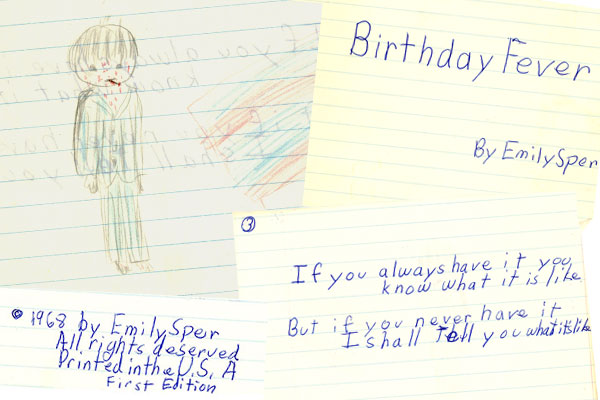 Birthday Fever
By Emily Sper
3
If you always have it you
know what it is like
But if you never have it
I shall Tell you what it's like
© 1968 by Emily Sper
All rights deserved
Printed in the U.S. A
First Edition